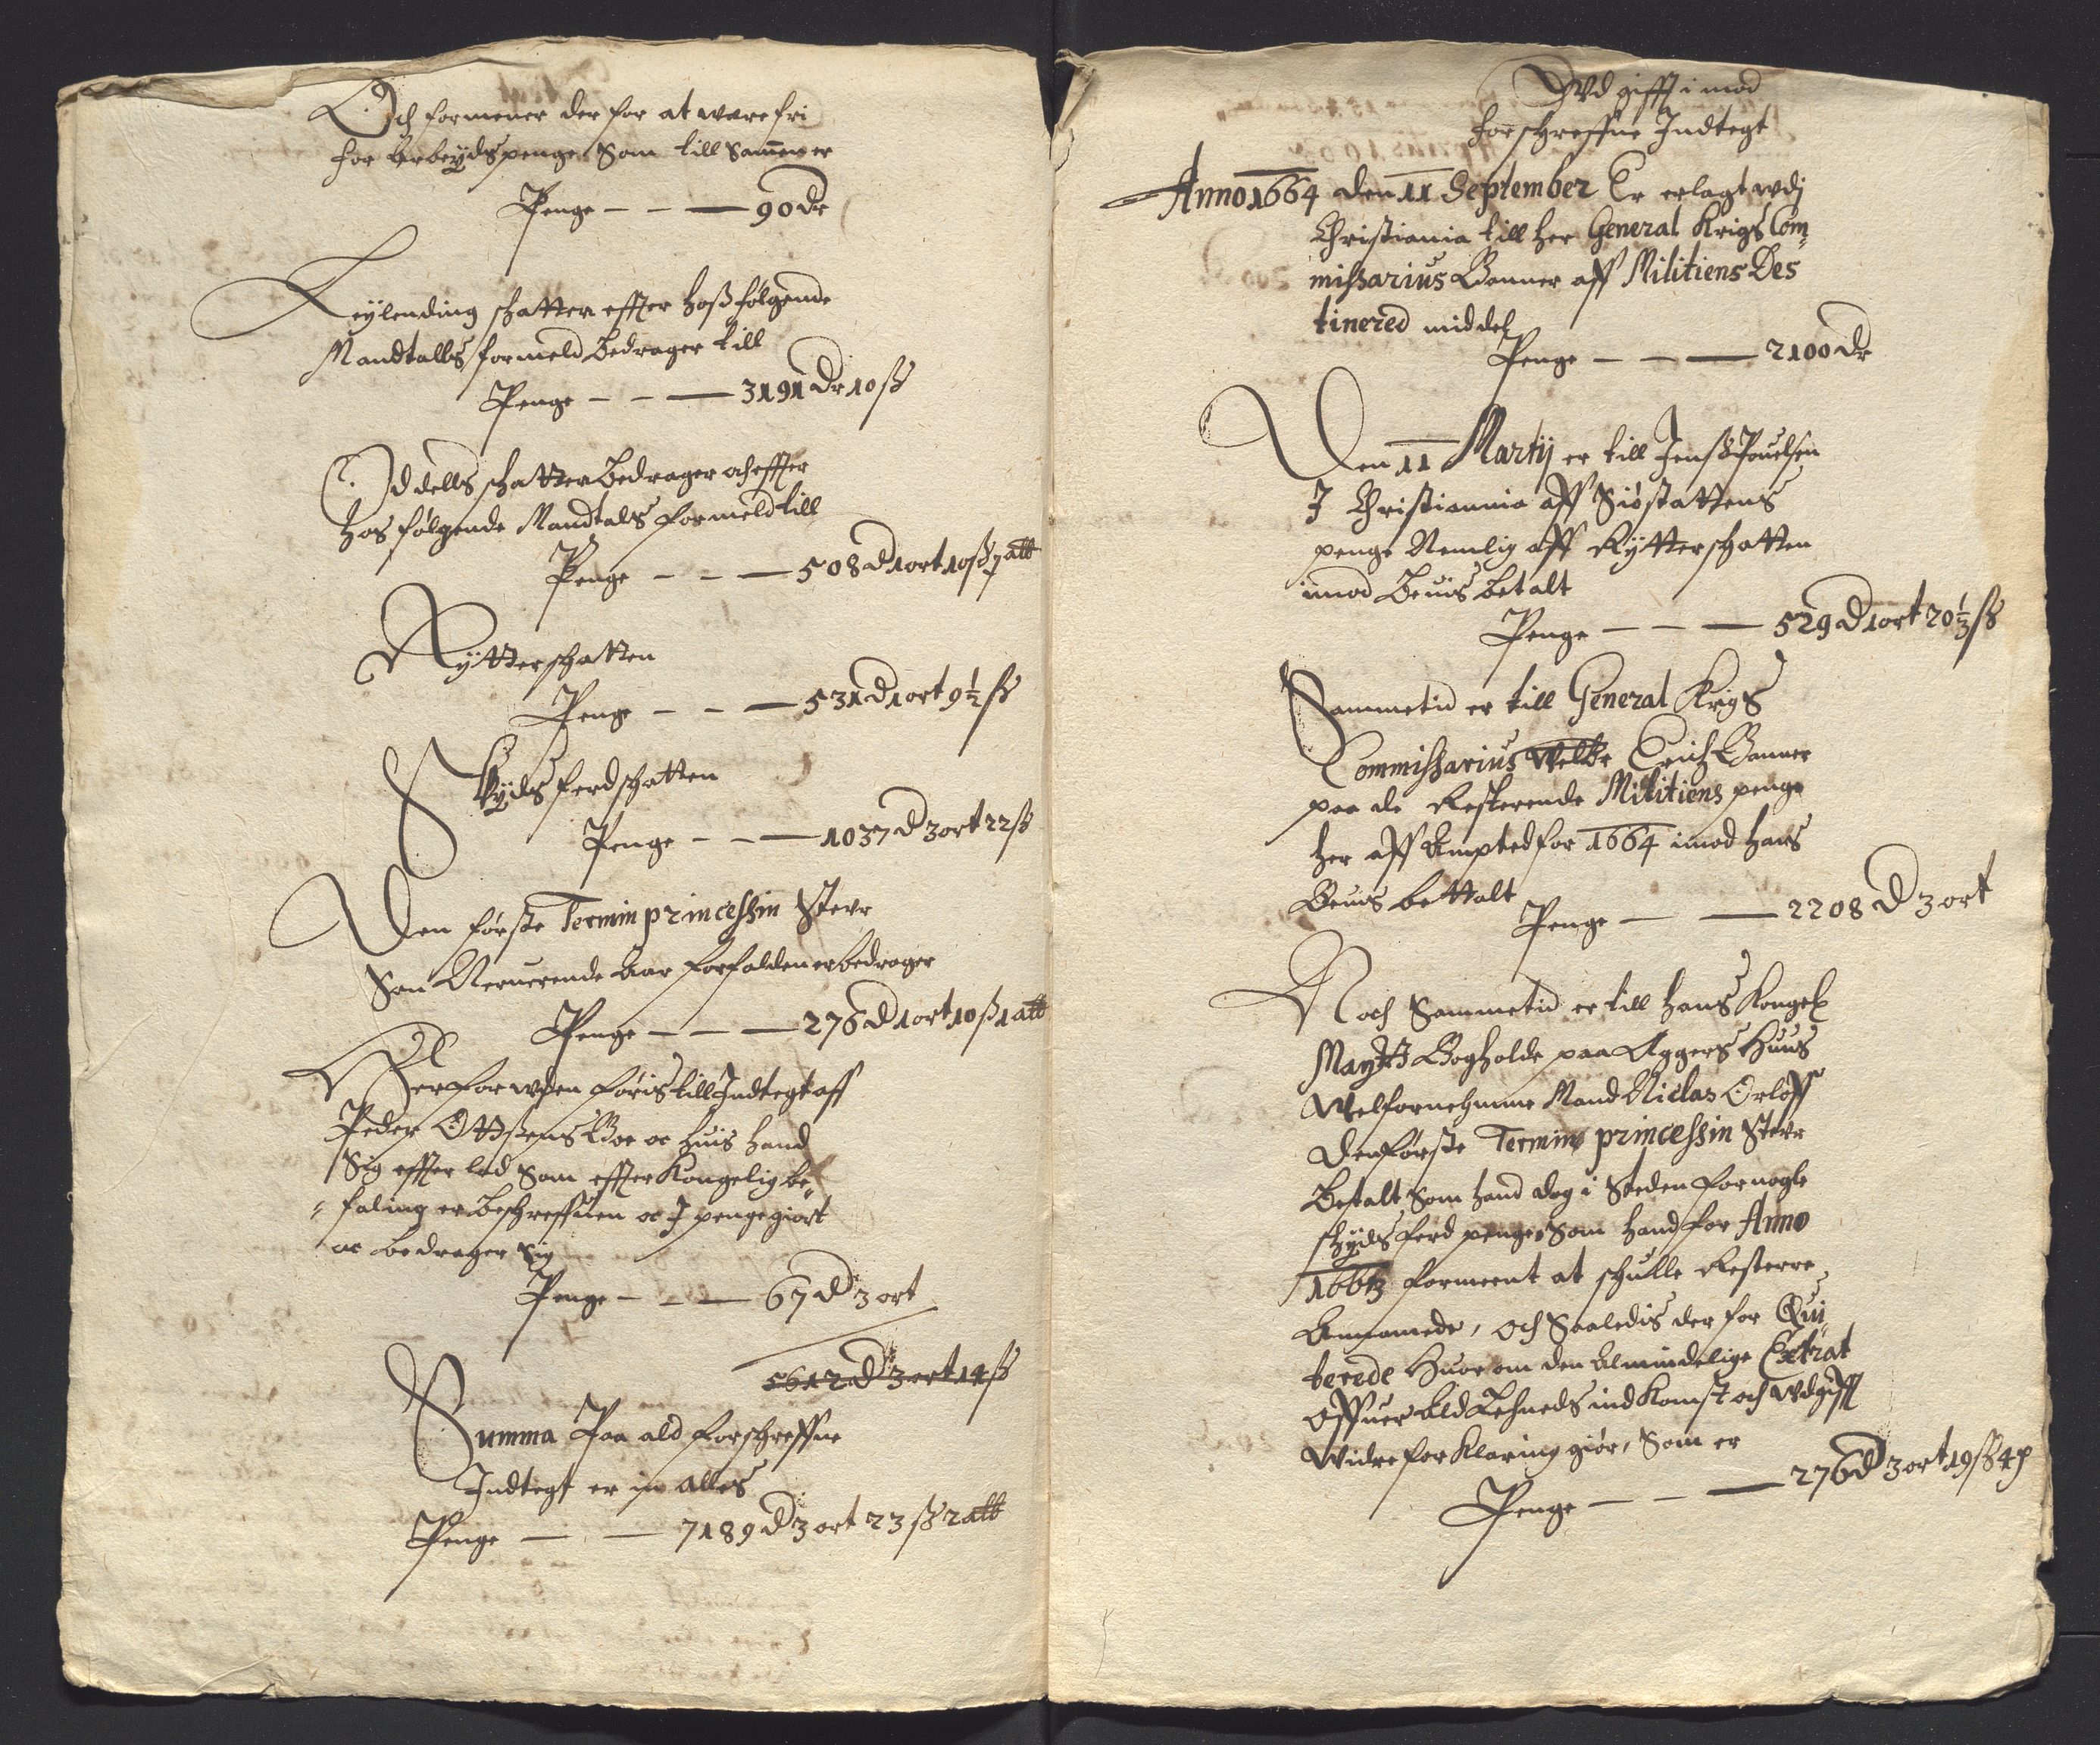 Och formener der for at ware fri
for Arbeydspenge Som till Samen er
Penge — — — 90 dr
Leylending schatten effter hoßfølgende
Mandtalls formeld bedrager till
Penge — — — 3191 dr 10 ß
Oddells schatten bedrager och effter
hos følgende Mandtals formeld till
Penge — — — 508 d 1 ort 10 ß 1 alb
Rytterschatten
Penge — — — 531 d 1 ort 9½ ß
Skydsferdschatten
Penge — — — 1037 d 3 ort 22 ß
Den første Termin princeßin Steur
Som Neruerende Aar forfalden er bedrager
Penge — — — 276 d 1 ort 10 ß 1 alb
Herforuden føris till Indtegt aff
Peder Ottßens Boe oc huis hand
Sig effter lod Som effter Kongelig be„
„faling er beschreffuen oc I penge giort
oc bedrager Sig
Penge — — — 67 d 3 ort
5612 d 3 ort 14 ß
Summa Paa ald forschreffne
Indtegt er in alles
Penge — — 7189 d 3 ort 23 ß 2 alb
Wdgifft imod
forschreffne Indtegt
Anno 1664 den 11 September Er erlagt udj
Christiania till her General Krigs Com„
mißarius Banner aff Militiens Des
tinered middel
Penge — — — 2100 dr
Den 11 Martij er till Jenß Pouelsen
I Christiannia aff Siøstattens
penge Nemlig aff Rytterschatten
imod Beuis betalt
Penge — — — 529 d 1 ort 20⅓ ß
Sammetid er till General Krigs
Commißarius Welbr Erich Banner
paa de Resterende Militiens penge
her aff Ampted for 1664 imod hans
Beuis bettalt
Penge — — 2208 d 3 ort
Noch Sammetid er till hans Kongel
Maytz Bogholde paa Aggers Huus
Welfornehmme Mand Niclas Orloff
den første Termin princeßin Steur
Betalt Som hand dog i Steden for nogle
schydsferd penge, Som hand for Anno
1663 forment at schulle Resterre
Annamede, och Saaledis der for Qui„
terede Huor om den Almindelige Extrat
offuer ald Lehneds indkomst och wdgifft
widre forklaring giør, Som er
Penge — — — 276 d 3 ort 19 ß 4 ₰